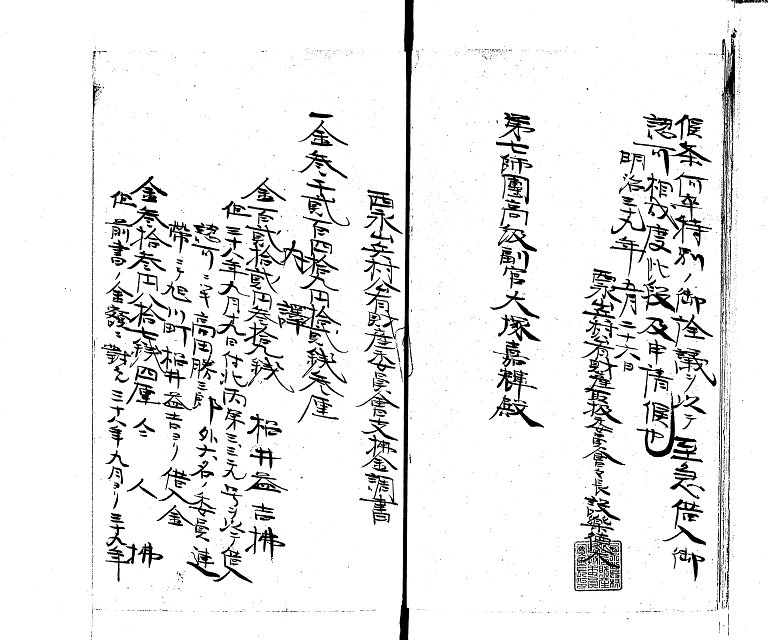 候条何卒特別ノ御詮議ヲ以テ至急借入御
認可相成度此段及申請候也
明治三九年五月二十六日
西永山兵村公有財産取扱委員會々長設樂
第七師團高級副官大塚嘉輝殿
西永山兵村公有財産委員會支拂金調書
一金叁千貳百四拾九円拾貳銭叁厘
内譯
金百貳拾貳円叁拾九銭 松井益吉拂
但三十八年九月九日付北丙第三三元号ヲ以テ借入
認可ニヨ高田勝三郎外六名ノ委員連
帶ニテ旭川町松井益吉ヨリ借入金
金叁拾叁円八拾七銭四厘 仝人拂
但前書ノ金額ニ對スル三十八年九月ヨリ三十九年